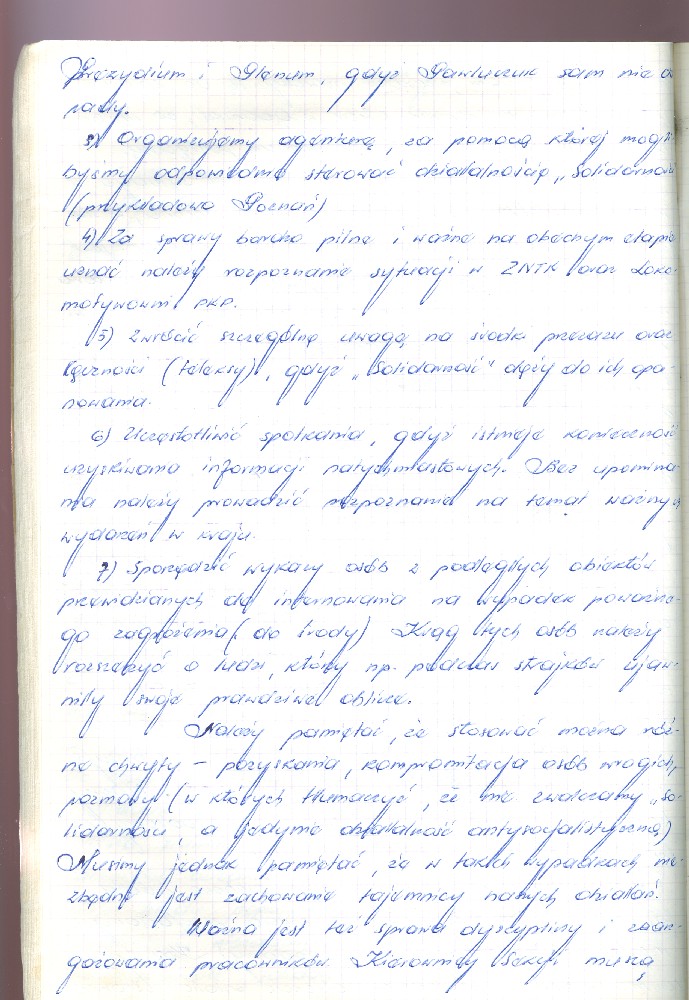 Prezydium i Plenum, gdyż Pawluczuk sam nie da
rady.
3) Organizujemy agenturę, za pomocą której mogli-
byśmy odpowiednio sterować działalnością „Solidarność
(przykładowo Poznań)
4) Za sprawy bardzo pilne i ważne na obecnym etapie
uznać należy rozpoznanie sytuacji w ZNTK oraz Loko-
motywowni PKP.
5) Zwrócić szczególną uwagę na środki przekazu oraz
łączności (teleksy), gdyż „Solidarność" dąży do ich opa-
nowania.
6) Uczęstotliwić spotkania, gdyż istnieje konieczność
uzyskiwania informacji natychmiastowych. Bez upomina-
nia należy prowadzić rozpoznanie na temat ważnych
wydarzeń w kraju.
7) Sporządzić wykazy osób z podległych obiektów
przewidzianych do internowania na wypadek poważne-
go zagrożenia (do środy) Krąg tych osób należy
rozszerzyć o ludzi, którzy np. podczas strajków ujaw-
niły swoje prawdziwe oblicze.
Należy pamiętać, że stosować można róż-
ne chwyty – pozyskania, kompromitacja osób wrogich,
rozmowy (w których tłumaczyć, że nie zwalczamy „So-
lidarności, a jedynie działalność antysocjalistyczną)
Musimy jednak pamiętać, że w takich wypadkach nie-
zbędne jest zachowanie tajemnicy naszych działań.
Ważna jest też sprawa dyscypliny i zaan-
gażowania pracowników. Kierownicy Sekcji muszą